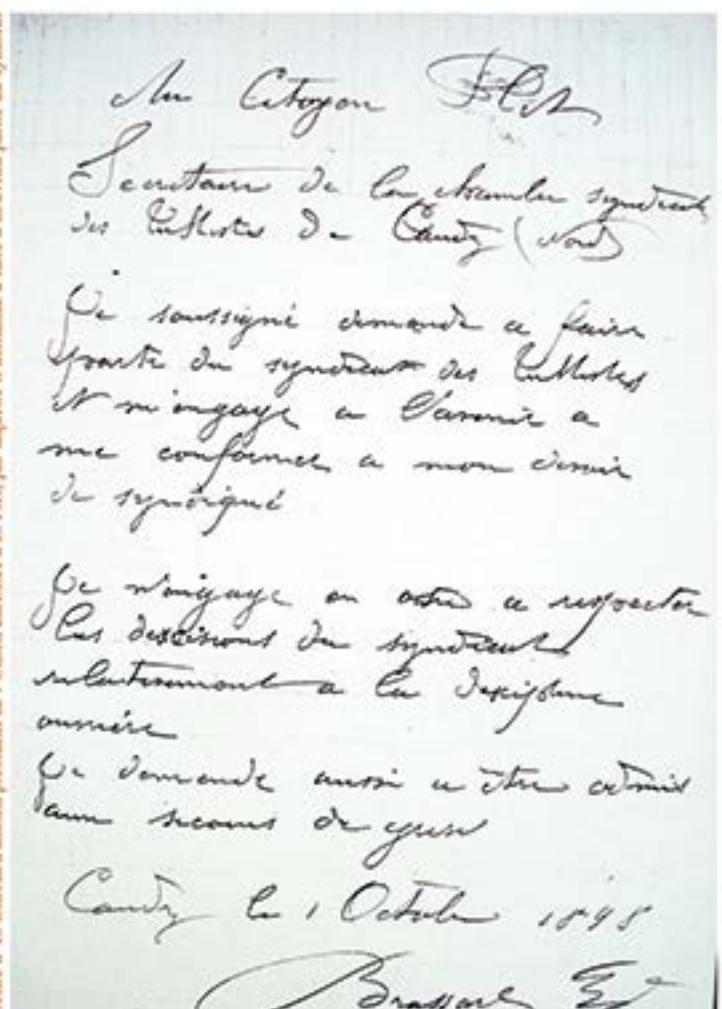 Au Citoyen Plet
Secretaire de la chambre syndicale
des Tullistes de Caudry (Nord)
Je soussigné demande a faire
partie du syndicat des Tullistes
et m'engage a l'avenir a
me conformer a mon devoir
de syndiqué
Je m'engage en outre a respecter
les descisions du syndicat
relativement a la dixipline
ouvrière
Je demande aussi a être admis
aux secours de greve
Caudry le 1 Octobre 1898
Brassart